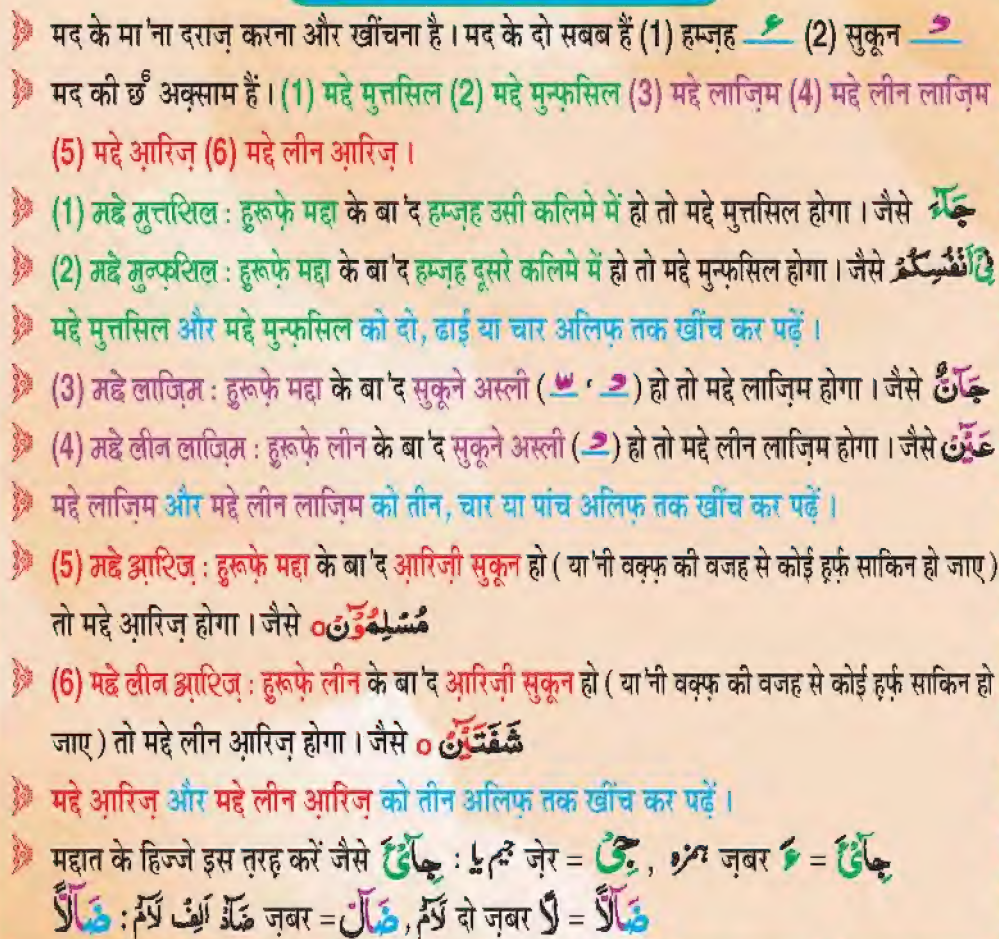 मद के मा'ना दराज़ करना और खींचना है । मद के दो सबब हैं (1) हम्ज़ह ء (2) सुकून ـْ
मद की छँ अक़्साम हैं । (1) मद्दे मुत्तसिल (2) मद्दे मुन्फ़सिल (3) मद्दे लाज़िम (4) मद्दे लीन लाज़िम
(5) मद्दे आ़रिज़ (6) मद्दे लीन आ़रिज़ ।
(1) मद्दे मुत्तसिल : हुरूफ़े मद्दा के बा'द हम्ज़ह उसी कलिमे में हो तो मद्दे मुत्तसिल होगा । जैसे جَآءَ
(2) मद्दे मुन्फ़सिल : हुरूफ़े मद्दा के बा'द हम्ज़ह दूसरे कलिमे में हो तो मद्दे मुन्फ़सिल होगा । जैसे فِیْۤ اَنْفُسِكُمْ
मद्दे मुत्तसिल और मद्दे मुन्फ़सिल को दो, ढाई या चार अलिफ़ तक खींच कर पढ़ें ।
(3) मद्दे लाज़िम : हुरूफ़े मद्दा के बा'द सुकूने अस्ली (ـْ ، ـّ) हो तो मद्दे लाज़िम होगा । जैसे جَآنٌّ
(4) मद्दे लीन लाज़िम : हुरूफ़े लीन के बा'द सुकूने अस्ली (ـْ) हो तो मद्दे लीन लाज़िम होगा । जैसे عَیْٓنْ
मद्दे लाज़िम और मद्दे लीन लाज़िम को तीन, चार या पांच अलिफ़ तक खींच कर पढ़ें ।
(5) मद्दे आ़रिज़ : हुरूफ़े मद्दा के बा'द आ़रिज़ी सुकून हो ( या'नी वक़्फ़ की वजह से कोई ह़र्फ़ साकिन हो जाए )
तो मद्दे आ़रिज़ होगा । जैसे مُسْلِمُوْٓنَ o
(6) मद्दे लीन आ़रिज़ : हुरूफ़े लीन के बा'द आ़रिज़ी सुकून हो ( या'नी वक़्फ़ की वजह से कोई ह़र्फ़ साकिन हो
जाए ) तो मद्दे लीन आ़रिज़ होगा । जैसे شَفَتَیْٓنِ o
मद्दे आ़रिज़ और मद्दे लीन आ़रिज़ को तीन अलिफ़ तक खींच कर पढ़ें ।
मद्दात के हिज्जे इस त़रह़ करें जैसे جِآیْءَ : جیم یا ज़ेर = جِیْ , ہمزہ ज़बर ءَ = جِآیْءَ
ضَآلًّا : ضَآدْ اَلِفْ لَآمْ ज़बर = ضَآلْ , لَآمْ दो ज़बर لًا = ضَآلًّا